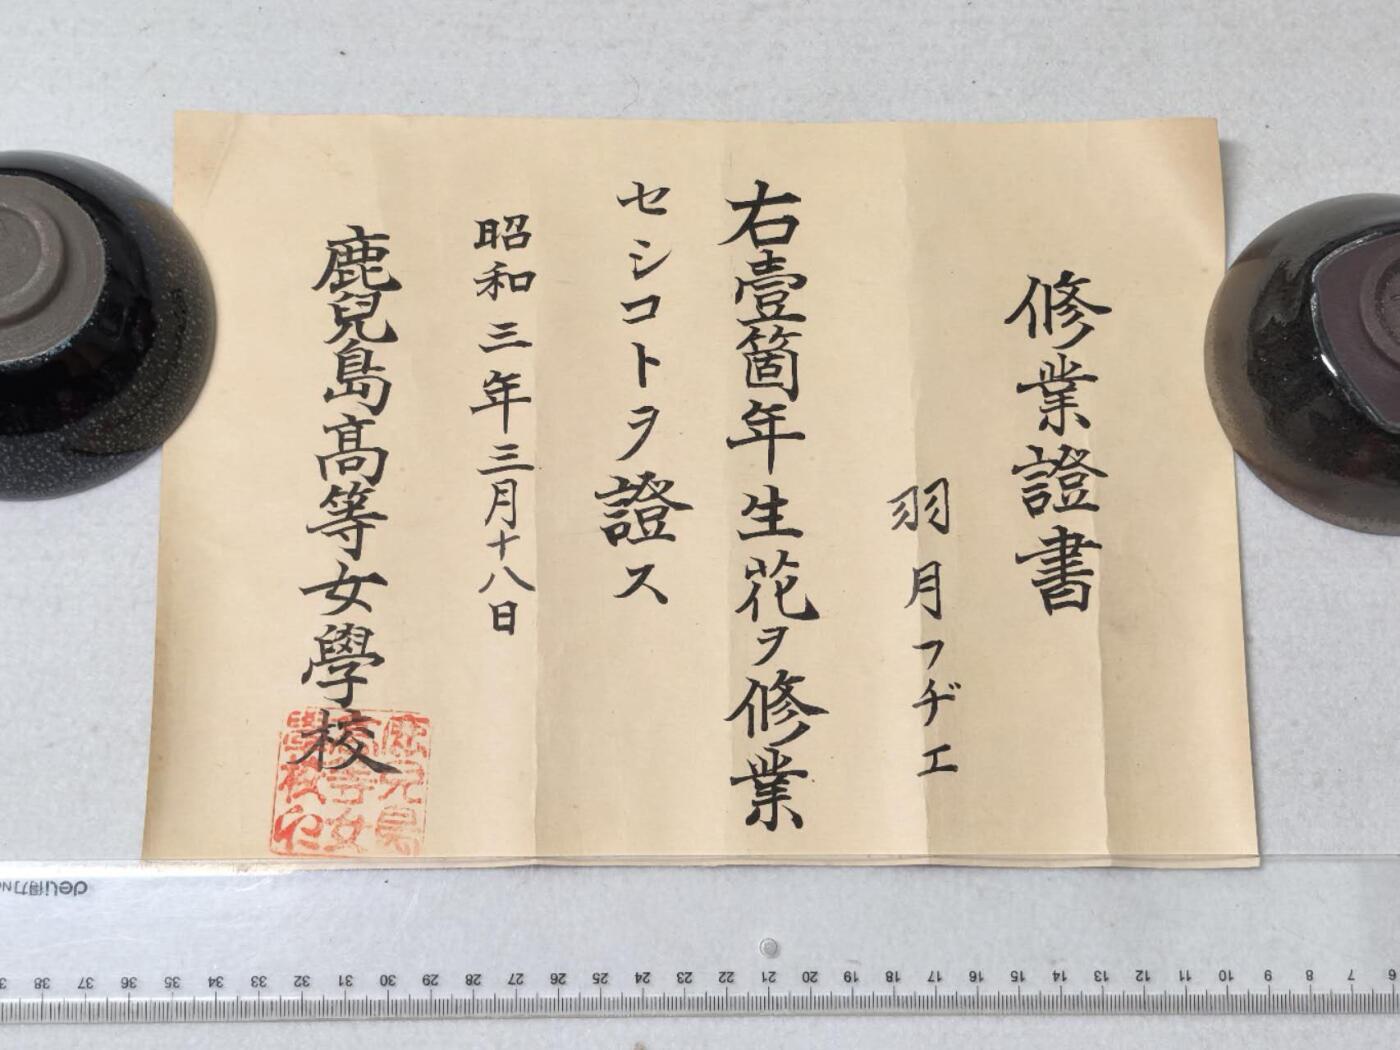 修業證書
羽月フヂエ
右壹箇年生花ヲ修業
セシコトヲ證ス
昭和三年三月十八日
鹿兒島高等女學校
鹿兒島
高等女
學校印
deli得力
38 37 36 35 34 33 32 31 30 29 28 27 26 25 24 23 22 21 20 19 18 17 16 15 14 13 12 11 10 9 8 7 6